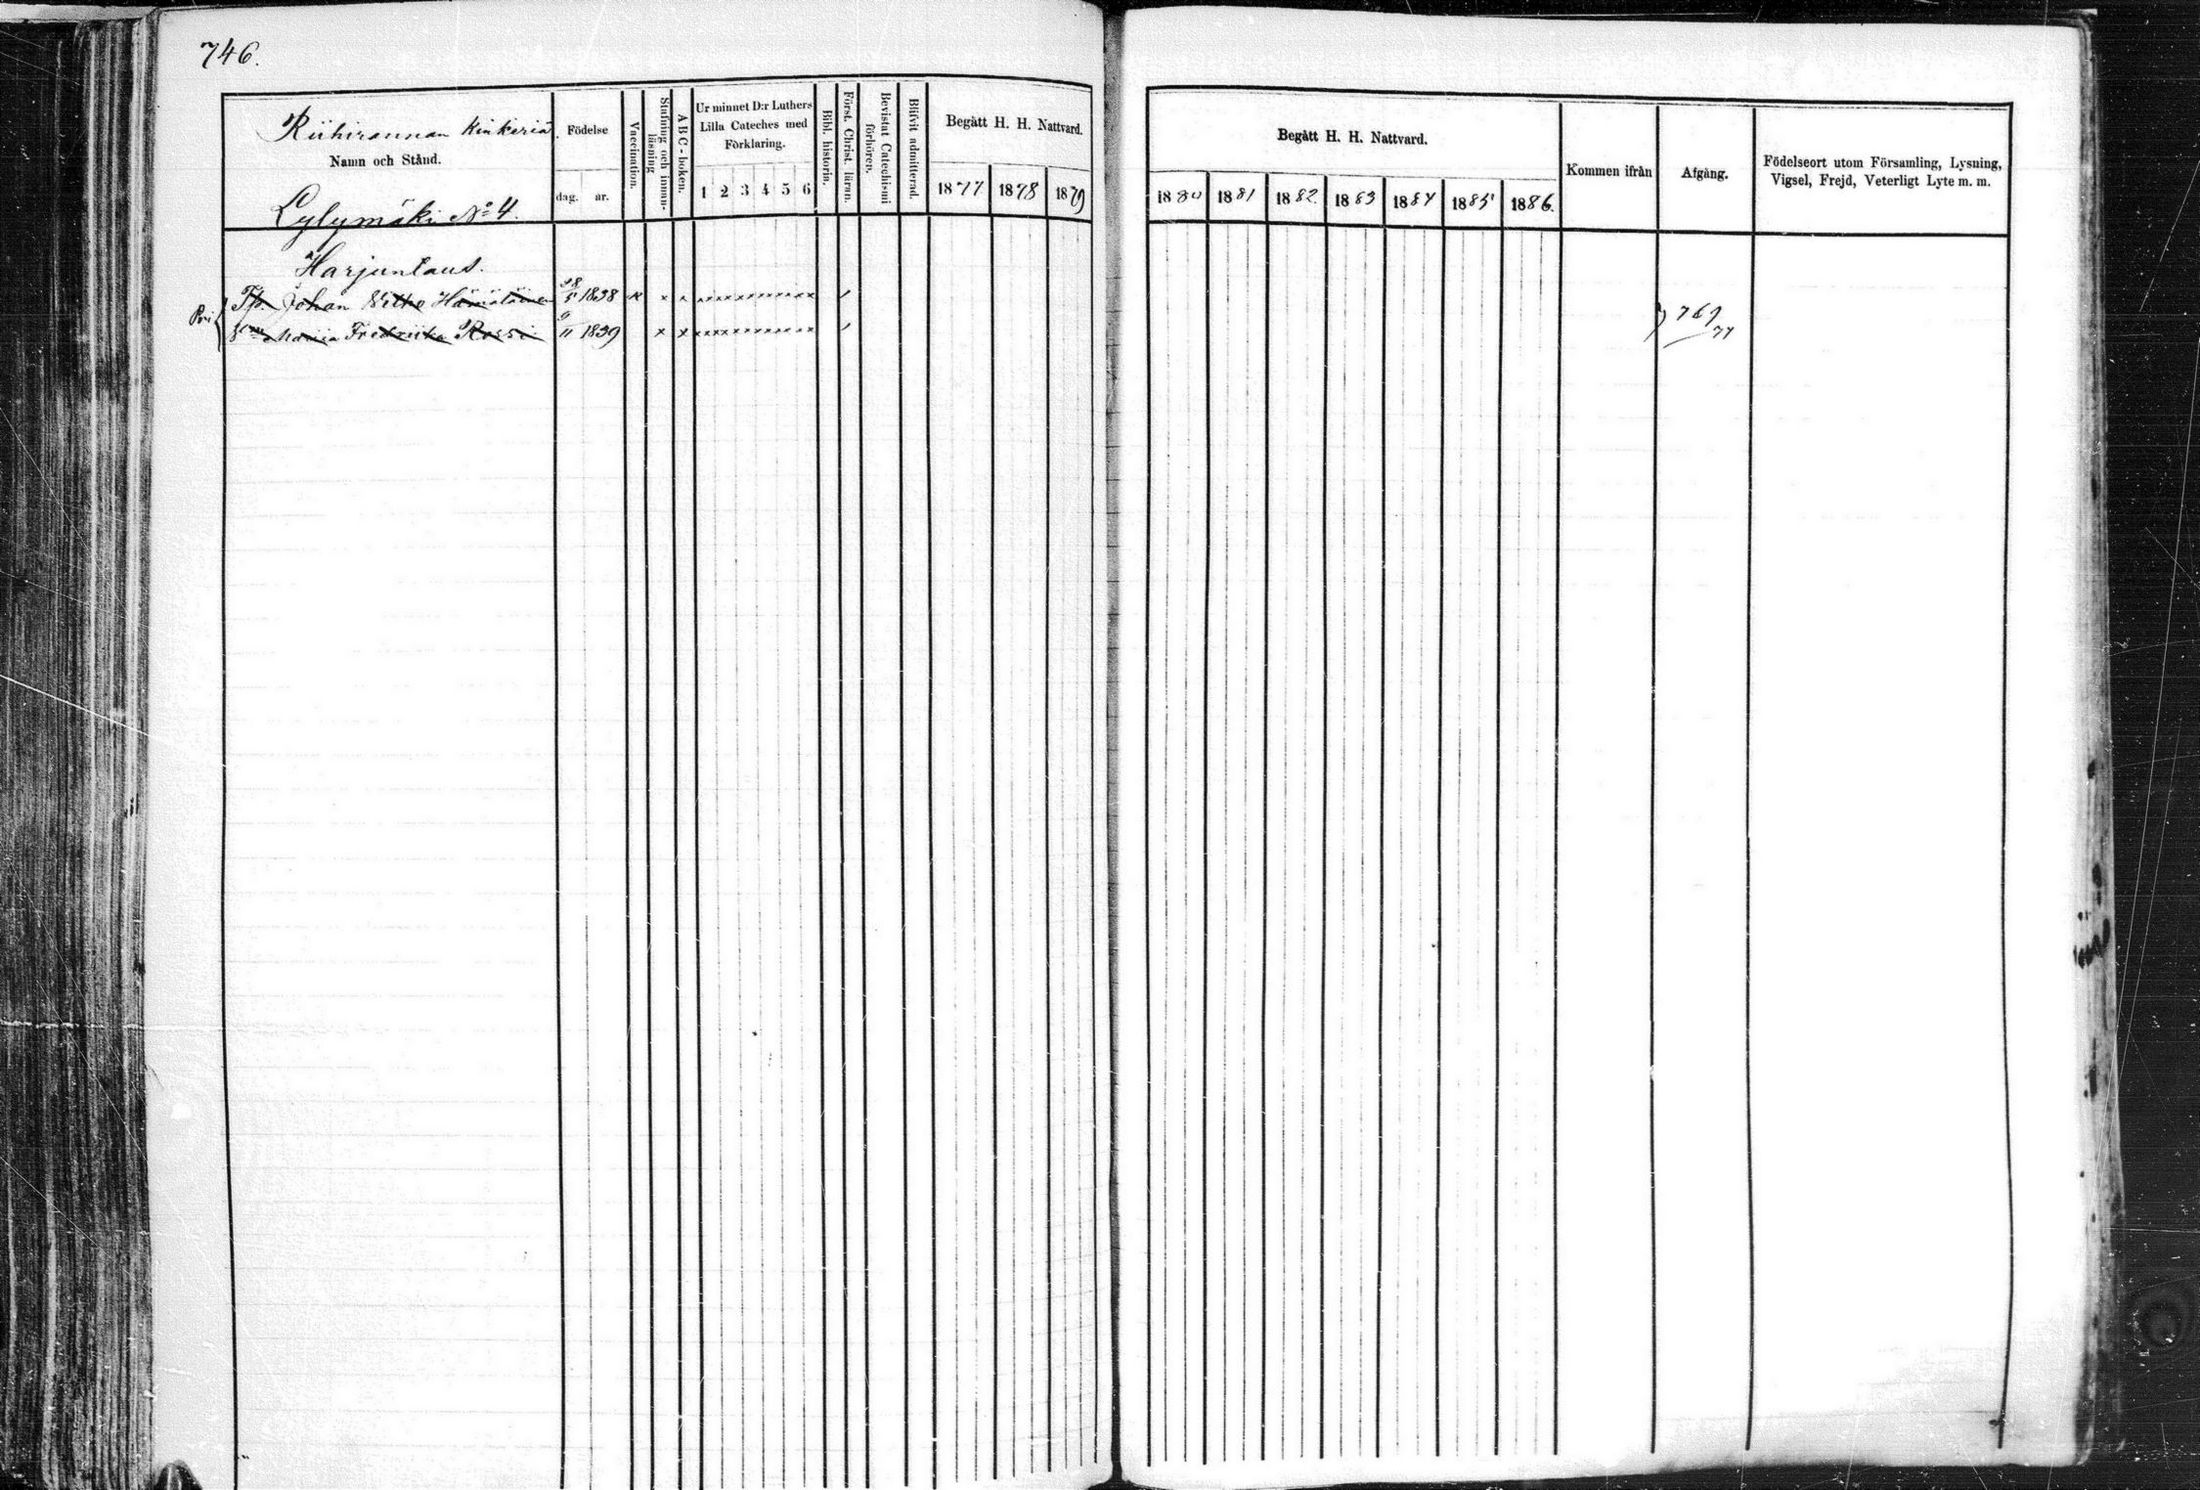 746.
Riihirannan Kinkeriä
Namn och Stånd.
Lylymäki No 4.
Födelse
dag. år.
Vaccination.
Stafning och innan-
läsning
A B C - boken.
Ur minnet D:r Luthers
Lilla Cateches med
Förklaring.
1 2 3 4 5 6
Bibl. historia.
Först. Christ. läran.
Bevistat Catechismi
förhören.
Blifvit admitterad.
Begått H. H. Nattvard.
1877 1878 1879
Begått H. H. Nattvard.
1880 1881 1882. 1883 1884 1885 1886.
Kommen ifrån
Afgång.
Födelseort utom Församling, Lysning,
Vigsel, Frejd, Veterligt Lyte m. m.
Harjuntaus.
Johan Wilho Hämäläinen 28/5 1838 x x x x x x x x x x x x x x x
Maria Fredrika Rossi 9/11 1839 x x x x x x x x x x x x x x
769
77